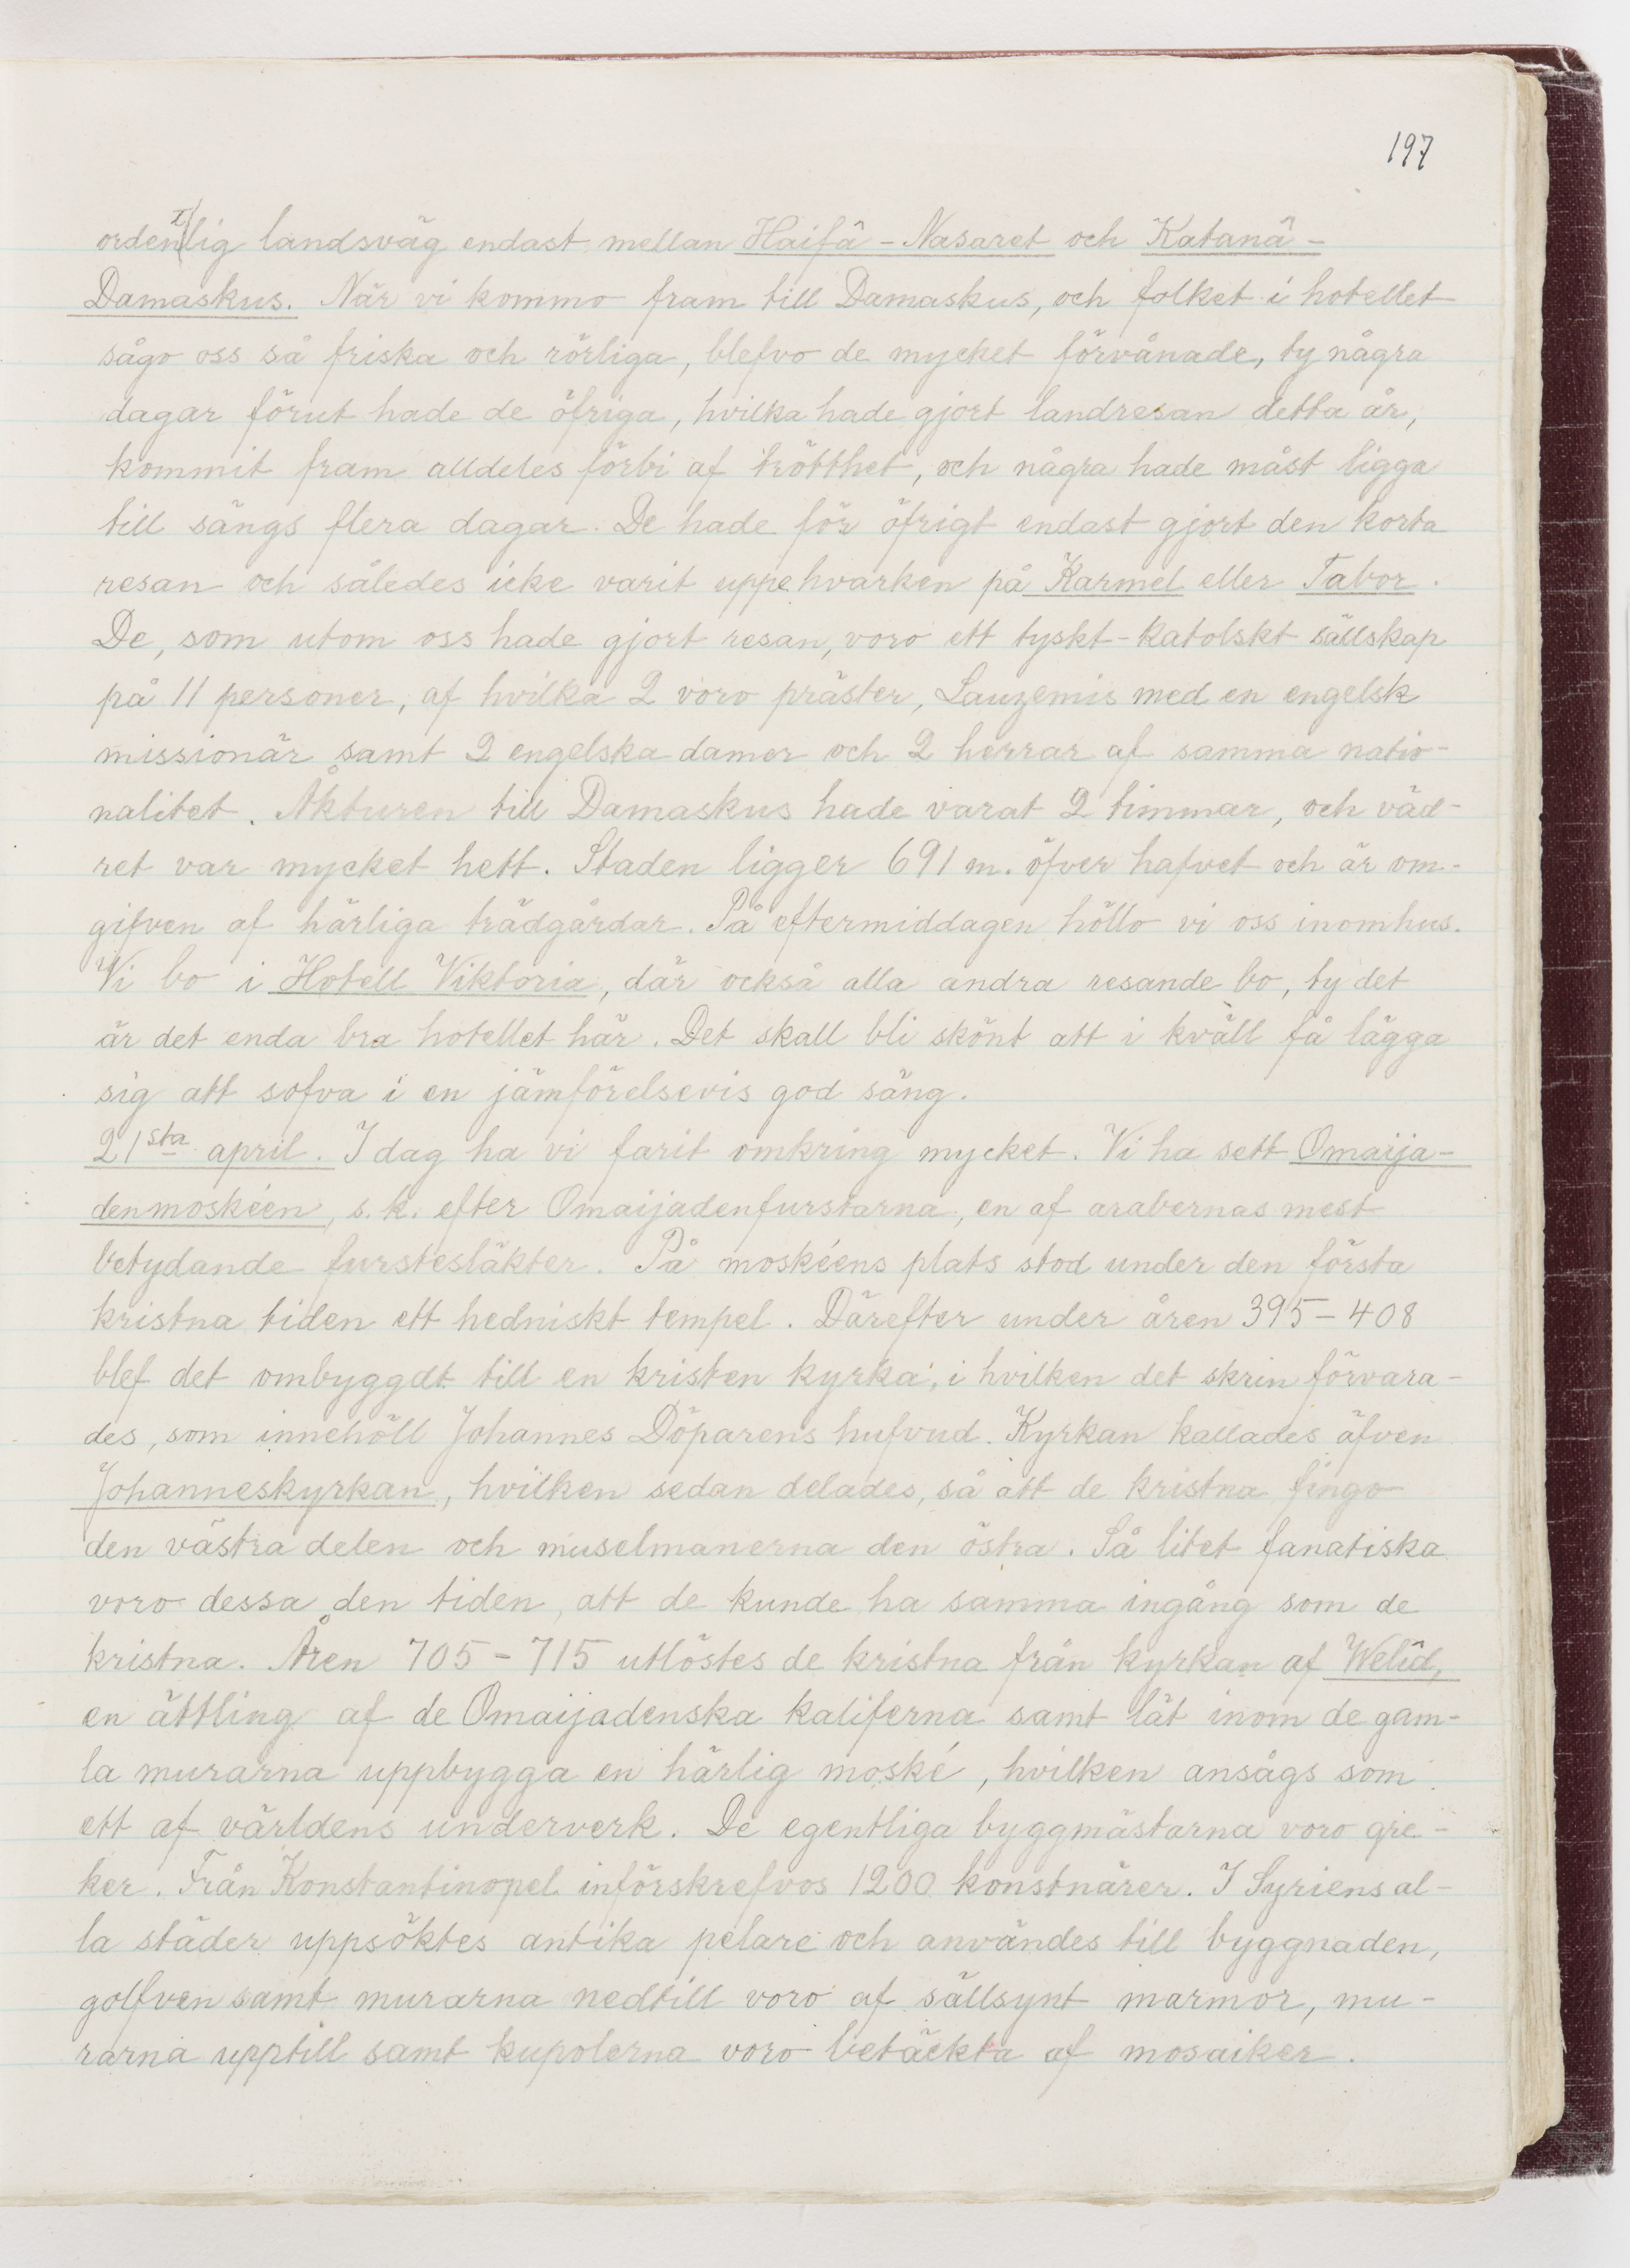 197
ordentlig landsväg endast mellan Haifâ - Nasaret och Katanâ -
Damaskus. När vi kommo fram till Damaskus, och folket i hotellet
sågo oss så friska och rörliga, blefvo de mycket förvånade, ty några
dagar förut hade de öfriga, hvilka hade gjort landresan detta år,
kommit fram alldeles förbi af trötthet, och några hade måst ligga
till sängs flera dagar. De hade för öfrigt endast gjort den korta
resan och således icke varit uppe hvarken på Karmel eller Tabor.
De, som utom oss hade gjort resan, voro ett tyskt-katolskt sällskap
på 11 personer, af hvilka 2 voro präster, Lauzemis med en engelsk
missionär samt 2 engelska damer och 2 herrar af samma natio-
nalitet. Åkturen till Damaskus hade varat 2 timmar, och väd-
ret var mycket hett. Staden ligger 691 m. öfver hafvet och är om-
gifven af härliga trädgårdar. På eftermiddagen höllo vi oss inomhus.
Vi bo i Hotell Viktoria, där också alla andra resande bo, ty det
är det enda bra hotellet här. Det skall bli skönt att i kväll få lägga
sig att sofva i en jämförelsevis god säng.
21sta april. I dag ha vi farit omkring mycket. Vi ha sett Omaija-
denmoskéen, s.k. efter Omaijadenfurstarna, en af arabernas mest
betydande furstesläkter. På moskéens plats stod under den första
kristna tiden ett hedniskt tempel. Därefter under åren 395-408
blef det ombyggdt till en kristen kyrka, i hvilken det skrin förvara-
des, som innehöll Johannes Döparens hufvud. Kyrkan kallades äfven
Johanneskyrkan, hvilken sedan delades, så att de kristna fingo
den västra delen och muselmanerna den östra. Så litet fanatiska
voro dessa den tiden, att de kunde ha samma ingång som de
kristna. Åren 705-715 utlöstes de kristna från kyrkan af Welîd,
en ättling af de Omaijadenska kaliferna samt lät inom de gam-
la murarna uppbygga en härlig moské, hvilken ansågs som
ett af världens underverk. De egentliga byggmästarna voro gre-
ker. Från Konstantinopel införskrefvos 1200 konstnärer. I Syriens al-
la städer uppsöktes antika pelare och användes till byggnaden,
golfven samt murarna nedtill voro af sällsynt marmor, mu-
rarna upptill samt kupolerna voro betäckta af mosaiker.